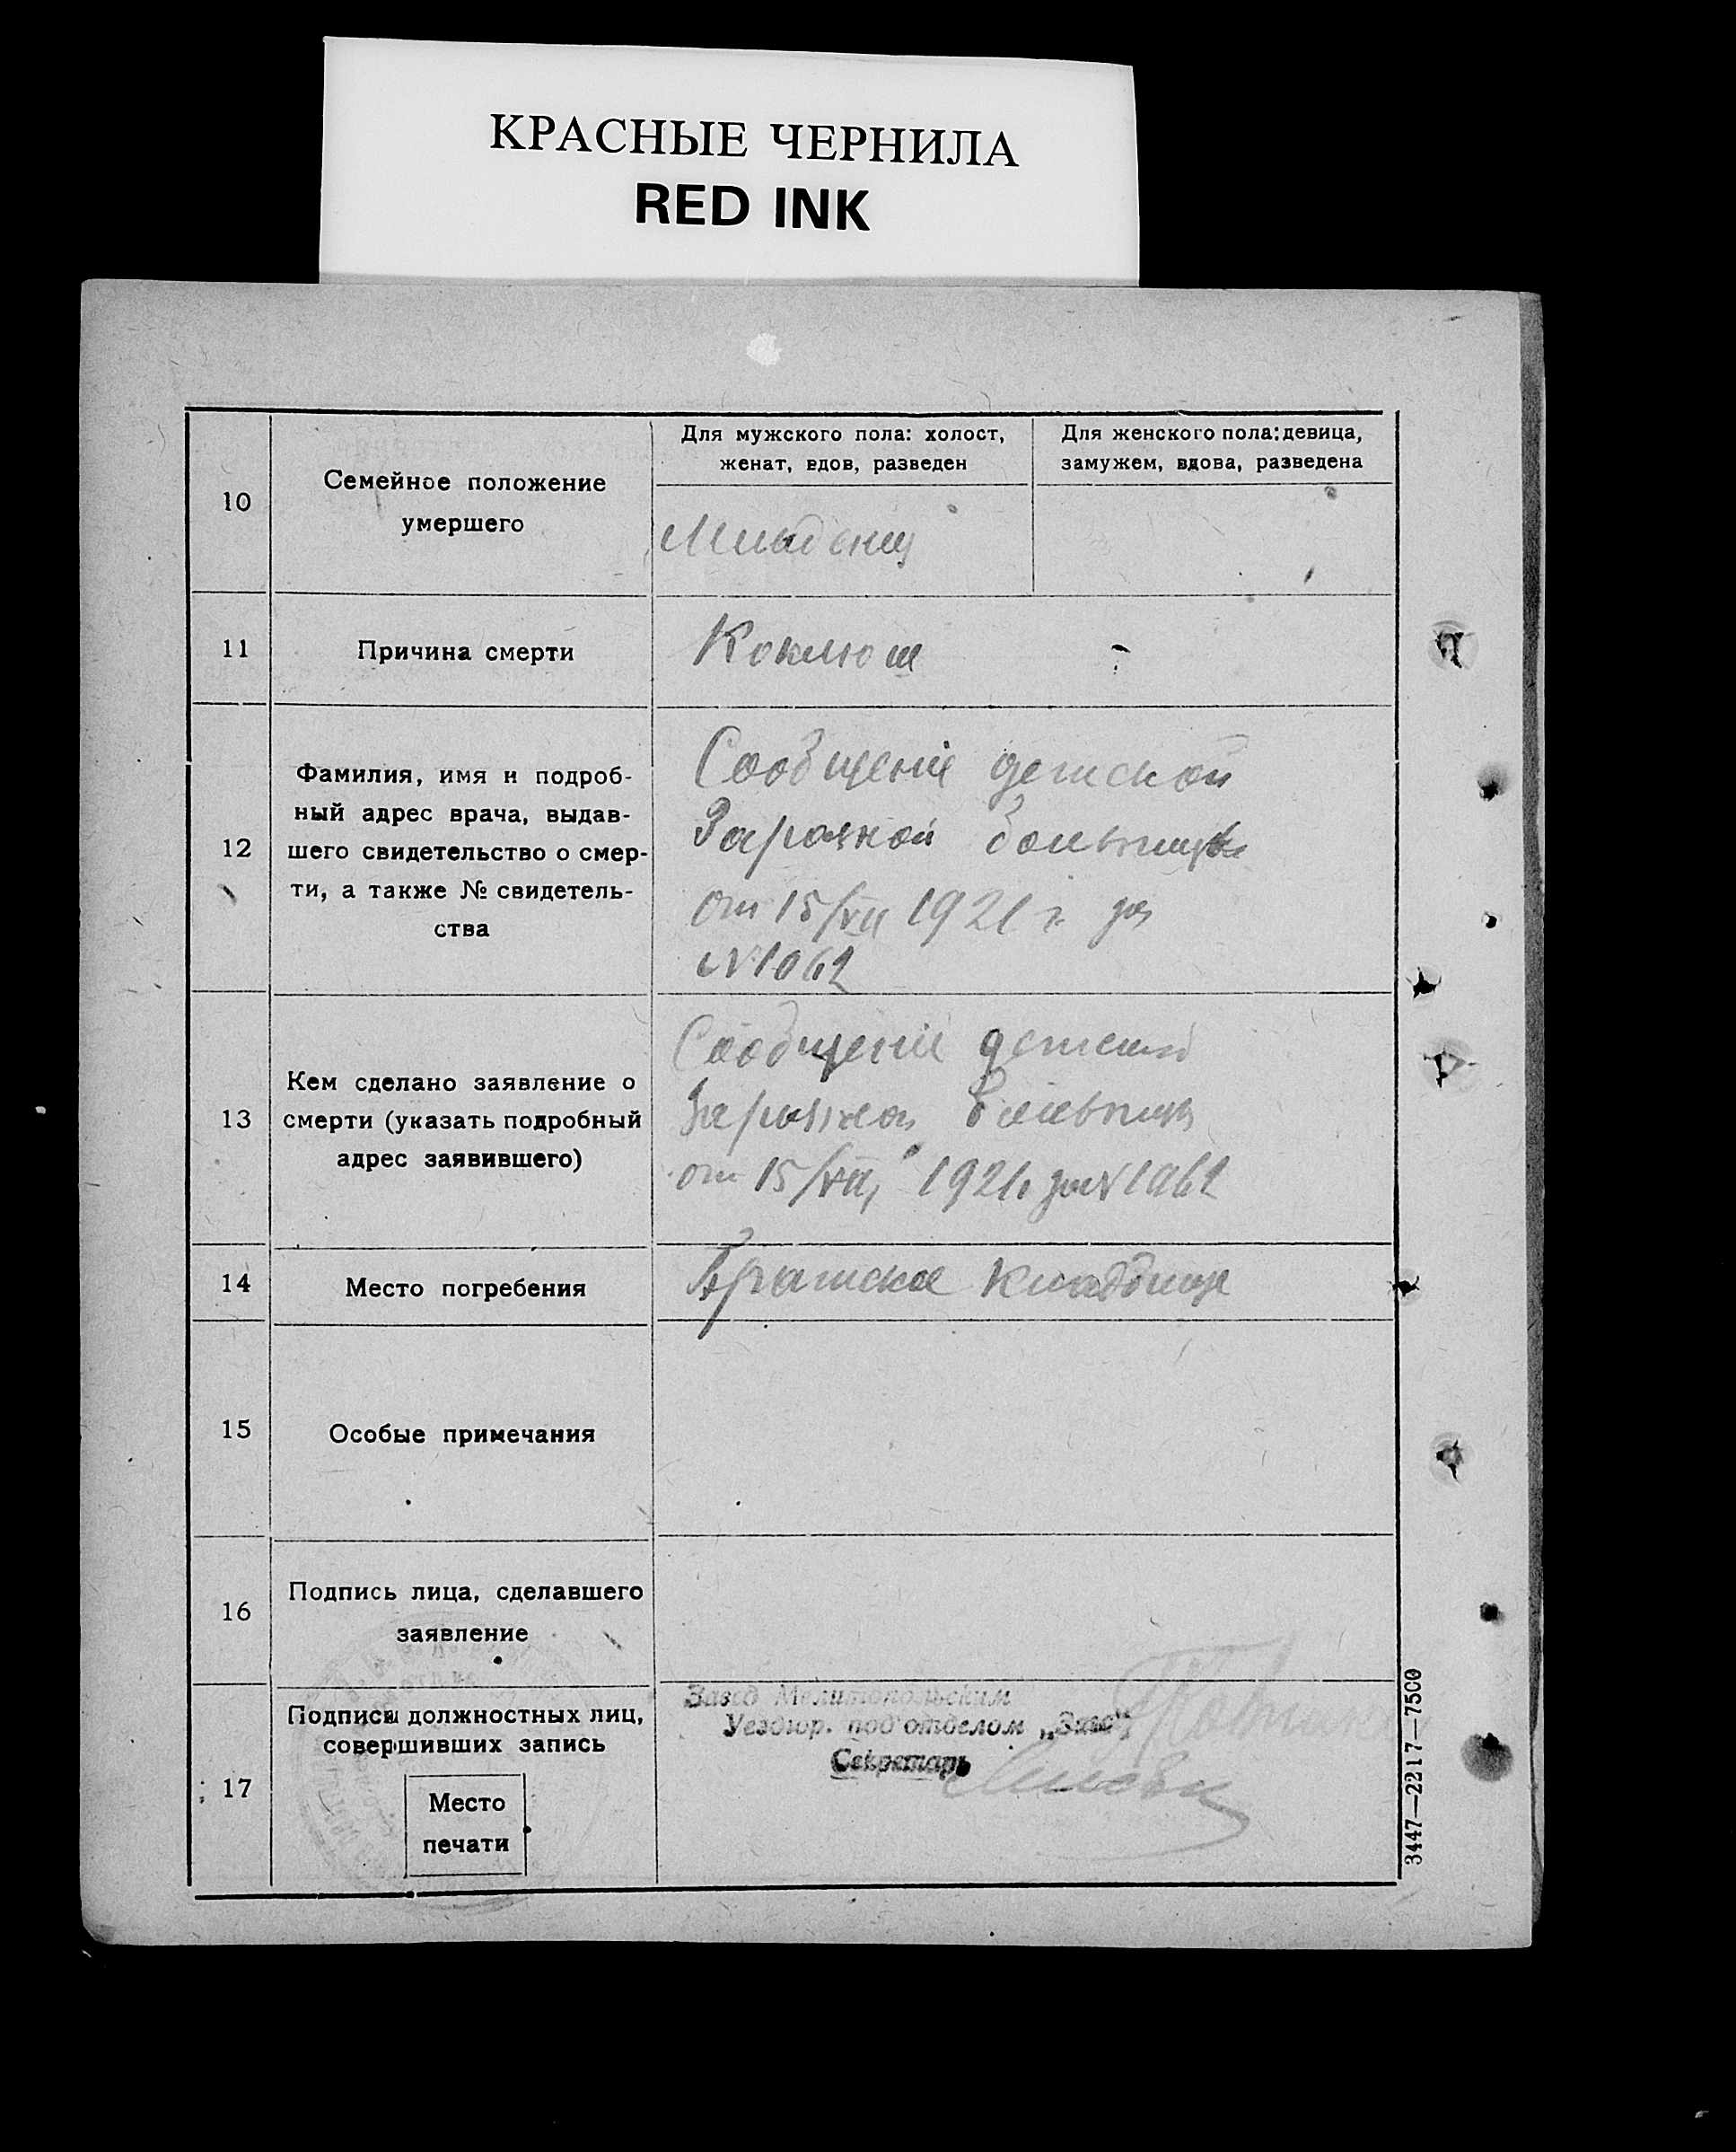 КРАСНЫЕ ЧЕРНИЛА
RED INK
10
Семейное положение
умершего
Для мужского пола: холост,
женат, вдов, разведен
Для женского пола: девица,
замужем, вдова, разведена
Младенец
11
Причина смерти
Коклюш
12
Фамилия, имя и подроб-
ный адрес врача, выдав-
шего свидетельство о смер-
ти, а также № свидетель-
ства
Сообщение детской
Заразной больницы
от 15/VII 1921 г. за
№1062
13
Кем сделано заявление о
смерти (указать подробный
адрес заявившего)
Сообщение детской
Заразной больницы
от 15/VII, 1921, за №1062
14
Место погребения
Братское кладбище
15
Особые примечания
16
Подпись лица, сделавшего
заявление
17
Подписи должностных лиц,
совершивших запись
Место
печати
Завед Мелитопольским
Уездюр. под'отделом „Загс“
Секретарь
3447—2217—7500